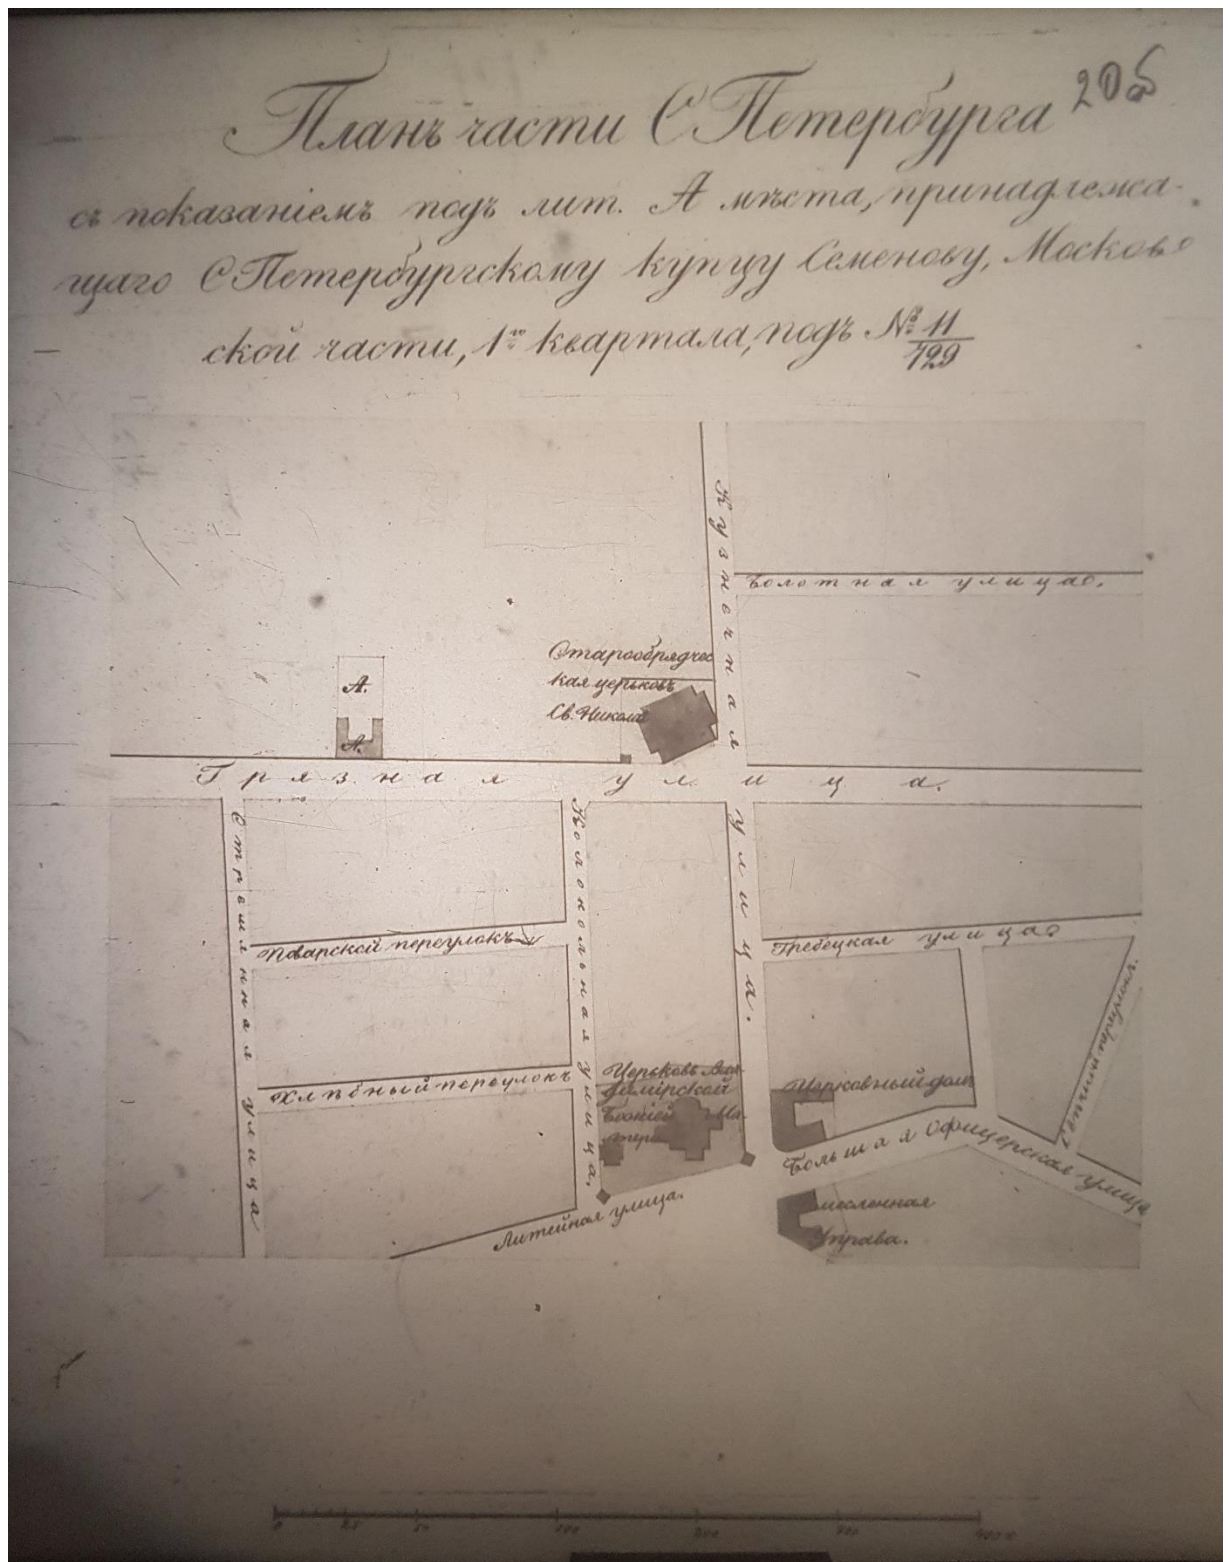 20б
Планъ части С Петербурга
съ показаніемъ подъ лит. А мѣста, принадлежа-
щаго С Петербургскому купцу Семенову, Москов
ской части, 1го квартала, подъ № 11/729
Кузнечная
Болотная улица.
Старообрядчес
кая церьковь
Св. Николая
А.
А.
Грязная улица.
Стремянная улица
Колокольная улица.
улица.
Поварской переулокъ
Гребецкая улица
Хлѣбный переулокъ
Церьковь Вла-
димірской
Божіей Ма-
тери
Церковный домъ
Большая Офицерская улица
Литейная улица.
Управа.
0 25 50 100 200 300 400